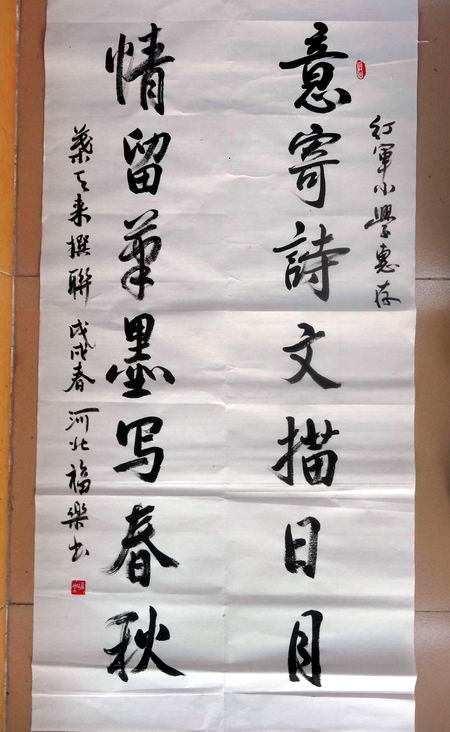 红军小学惠存
意寄詩文描日月
情留筆墨写春秋
葉天来撰聯 戊戌春 河北福樂书